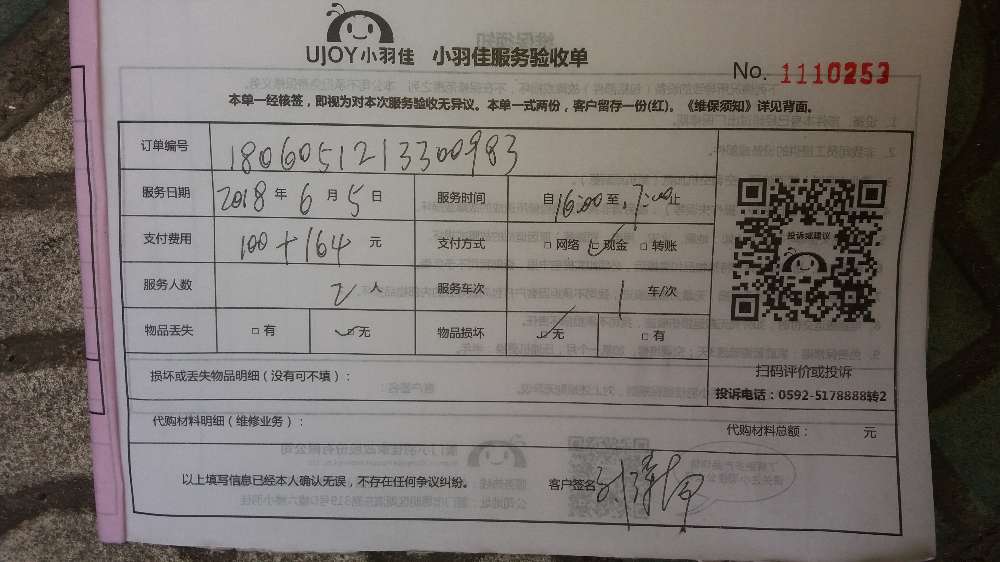 UJOY小羽佳 小羽佳服务验收单
No. 1110253
本单一经核签，即视为对本次服务验收无异议。本单一式两份，客户留存一份(红)。《维保须知》详见背面。
订单编号 1806051213300983
服务日期 2018年6月5日 服务时间 自16:00至17:00止
支付费用 100+164元 支付方式 □网络 □现金 □转账
服务人数 2人 服务车次 1车/次
物品丢失 □有 □无 物品损坏 □无 □有
投诉或建议
扫码评价或投诉
损坏或丢失物品明细（没有可不填）：
投诉电话：0592-5178888转2
代购材料明细（维修业务）：
代购材料总额： 元
以上填写信息已经本人确认无误，不存在任何争议纠纷。 客户签名